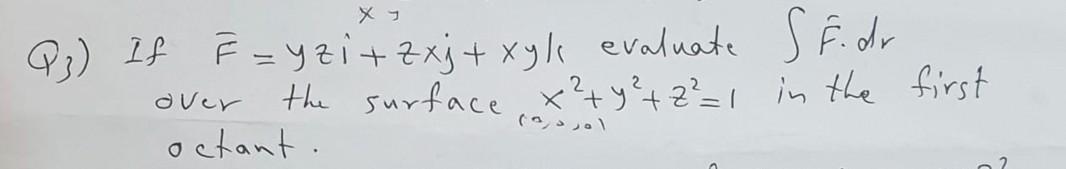 Q3) If F̄ = yzi + zxj + xyk evaluate ∫ F̄.dr
over the surface x²+y²+z²=1 in the first
octant.